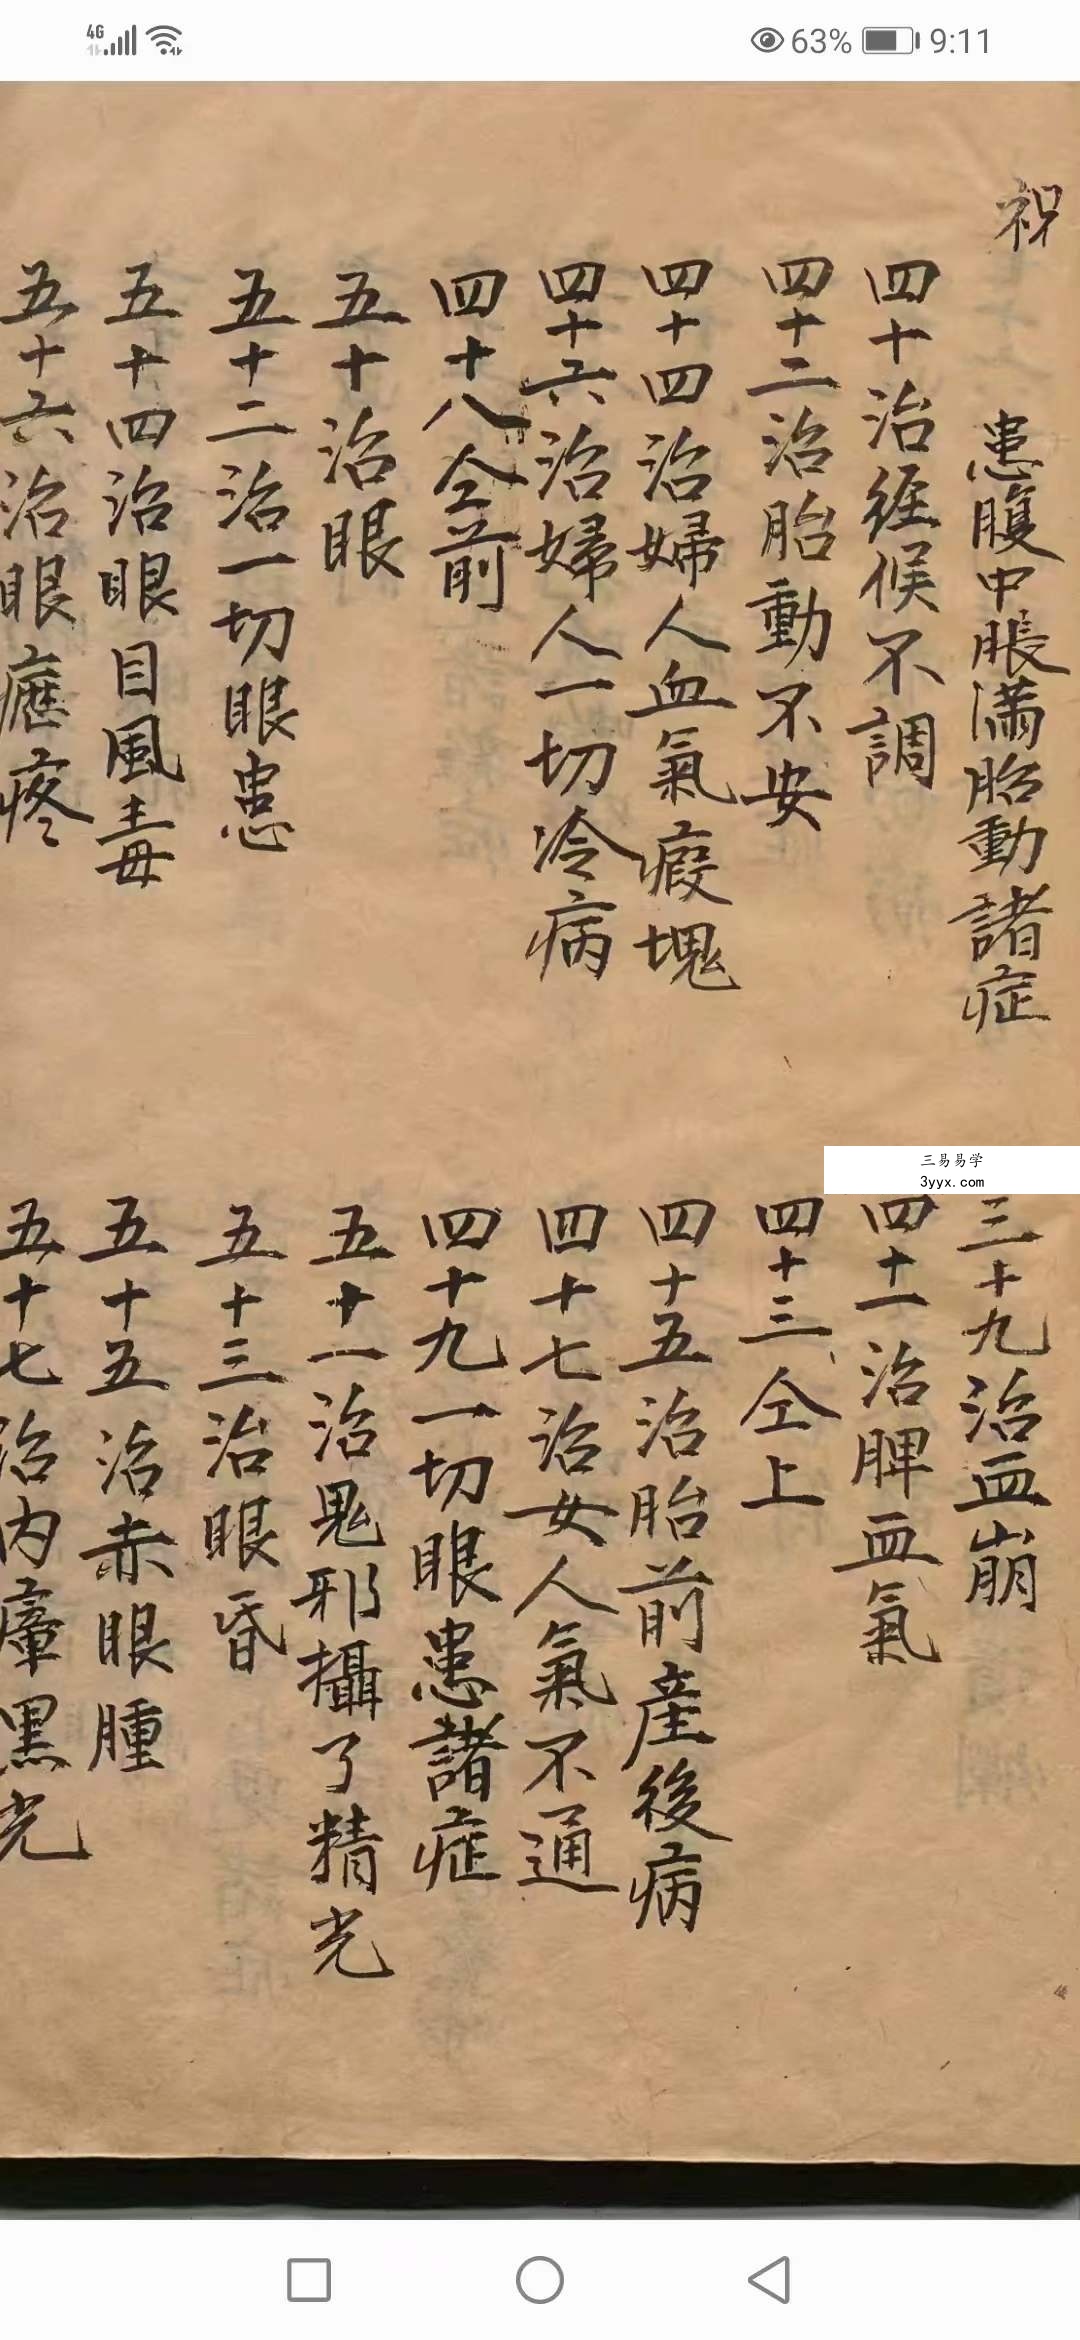 4G 63% 9:11
祝
患腹中脹滿胎動諸症
三十九治血崩
四十治經候不調
四十一治脾血氣
四十二治胎動不安
四十三仝上
四十四治婦人血氣瘕塊
四十五治胎前產後病
四十六治婦人一切冷病
四十七治女人氣不通
四十八仝前
四十九一切眼患諸症
五十治眼
五十一治鬼邪攝了精光
五十二治一切眼患
五十三治眼昏
五十四治眼目風毒
五十五治赤眼腫
五十六治眼 疼
五十七治內 黑光
三易易学
3yyx.com